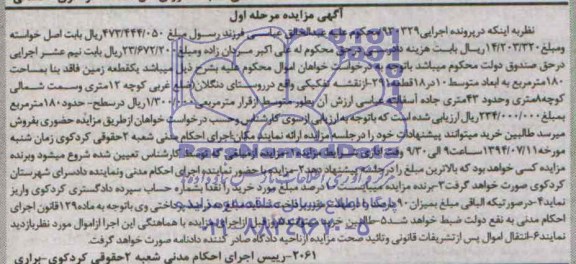 آگهی مزایده مرحله اول
نظریه اینکه درپرونده اجرایی محکوم علیه فرزند رسول مبلغ ۴۷۳/۴۴۴/۰۵۰ ریال بابت اصل خواسته
ومبلغ ۱۴/۲۰۳/۳۲۰ ریال بابت هزینه دادرسی درحق محکوم له علی اکبر سردان زاده ومبلغ ۲۳/۶۷۲/۲۰۰ بابت نیم عشر اجرایی
درحق صندوق دولت محکوم میباشد باتوجه به درخواست خواهان اموال محکوم علیه بشرح ذیل میباشد یکقطعه زمین فاقد بنا بمساحت
۱۸۰مترمربع به ابعاد متوسط ۱۰در۱۸قطعه۲۹۱-ازنقشه تفکیکی واقع درروستای دنگلان(ضلع غربی کوچه ۱۲متری وسمت شمالی
کوچه۸متری وحدود ۴۳متری جاده آسفالته عباسی ارزش آن بطور متوسط ازقرار مترمربعی ۱/۳۰۰/۰۰۰ ریال درسطح- حدود۱۸۰مترمربع
بمبلغ ۲۳۴/۰۰۰/۰۰۰ریال ارزیابی شده است که باتوجه به ارزیابی ازسوی کارشناس وحسب درخواست خواهان ازطریق مزایده حضوری بفروش
میرسد طالبین خرید میتوانند پیشنهادات خود را درجلسه مزایده ارائه نمایند مکان:اجرای احکام مدنی شعبه ۲حقوقی کردکوی زمان شنبه
مورخه۱۳۹۴/۰۷/۱۱ساعت۹ الی ۹/۳۰ وقت اداری شرایط مزایده مزایده ازمبلغی که توسط کارشناس تعیین شده شروع میشود وبرنده
مزایده کسی خواهدبود که بالاترین مبلغ را درجلسه پیشنهاد دهد۲-مزایده با حضور نماینده اجرای احکام مدنی ونماینده دادسرای شهرستان
کردکوی صورت خواهد گرفت۳-برنده مزایده میبایست درصد مبلغ مورد خرید را نقدا بشماره حساب سپرده دادگستری کردکوی واریز
نماید۴-درصورتیکه الباقی مبلغ بمیزان۹۰ وی باتوجه به ماده۱۲۹قانون اجرای
احکام مدنی به نفع دولت ضبط خواهد شد۵-طالبین خرید مزایده با هماهنگی این اجرا ازاموال مورد نظربازدید
نمایند۶-انتقال اموال پس ازتشریفات قانونی وتائید صحت مزایده ازناحیه دادگاه صادر کننده دادنامه صورت خواهد گرفت.
۲۰۶۱-رییس اجرای احکام مدنی شعبه ۲حقوقی کردکوی-براری
ParsNamadData
۰۲۱-۸۸۳۴۹۶۷۰-۵